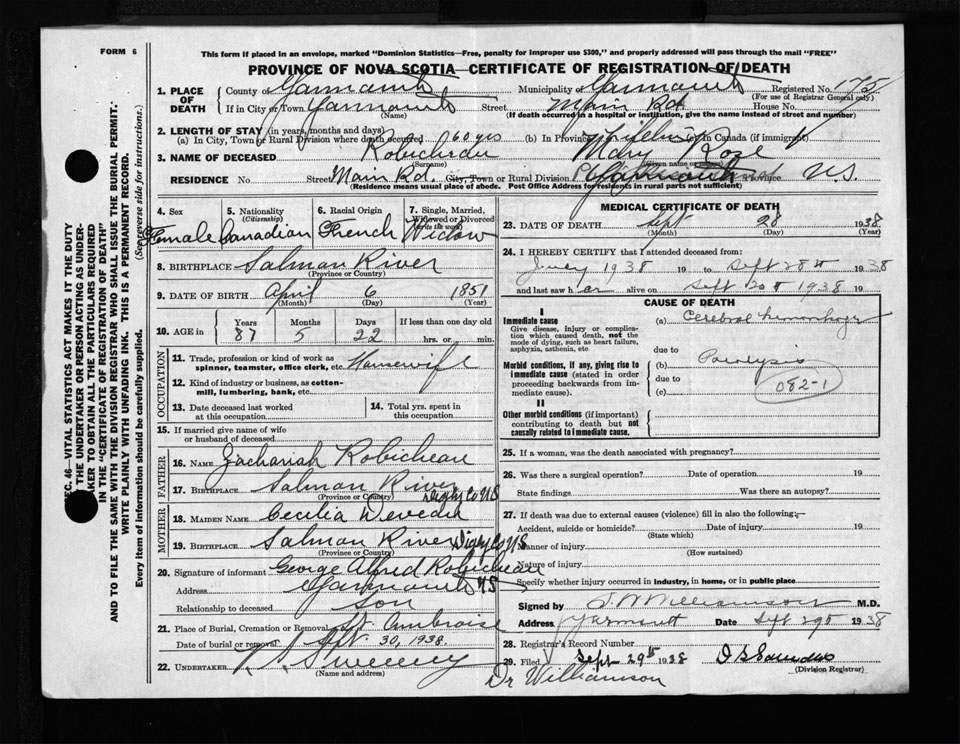 FORM 6
This form if placed in an envelope, marked "Dominion Statistics—Free, penalty for improper use $300," and properly addressed will pass through the mail "FREE"
PROVINCE OF NOVA SCOTIA—CERTIFICATE OF REGISTRATION OF DEATH
1. PLACE OF DEATH County of Yarmouth Municipality of Yarmouth Registered No. 175
(For use of Registrar General only)
If in City or Town Yarmouth Street Main Rd. House No.
(Name) (If death occurred in a hospital or institution, give the name instead of street and number)
2. LENGTH OF STAY (in years, months and days)
(a) In City, Town or Rural Division where death occurred 60 yrs (b) In Province (c) In Canada (if immigrant)
3. NAME OF DECEASED Robicheau Mary Rose
(Surname) (Given name)
RESIDENCE No. Street Main Rd. City, Town or Rural Division Yarmouth Province N.S.
(Residence means usual place of abode. Post Office Address for residents in rural parts not sufficient)
4. Sex Female
5. Nationality (Citizenship) Canadian
6. Racial Origin French
7. Single, Married, Widowed or Divorced (write the word) Widow
8. BIRTHPLACE Salmon River
(Province or Country)
9. DATE OF BIRTH April 6 1851
(Month) (Day) (Year)
10. AGE in Years 87 Months 5 Days 22 If less than one day old hrs. or min.
OCCUPATION
11. Trade, profession or kind of work as spinner, teamster, office clerk, etc. Housewife
12. Kind of industry or business, as cotton-mill, lumbering, bank, etc.
13. Date deceased last worked at this occupation
14. Total yrs. spent in this occupation
15. If married give name of wife or husband of deceased
FATHER
16. NAME Zachariah Robicheau
17. BIRTHPLACE Salmon River Digby Co NS
(Province or Country)
MOTHER
18. MAIDEN NAME Cecilia
19. BIRTHPLACE Salmon River Digby Co NS
(Province or Country)
20. Signature of informant George Alfred Robicheau
Address Yarmouth NS
Relationship to deceased Son
21. Place of Burial, Cremation or Removal St. Ambroise
Date of burial or removal Sept. 30, 1938.
22. UNDERTAKER Sweeney
(Name and address)
MEDICAL CERTIFICATE OF DEATH
23. DATE OF DEATH Sept 28 1938
(Month) (Day) (Year)
24. I HEREBY CERTIFY that I attended deceased from:
1938 19 to Sept 28th 1938
and last saw her alive on Sept 20th 1938 19
CAUSE OF DEATH
I
Immediate cause (a) Cerebral hemorrhage
Give disease, injury or complication which caused death, not the mode of dying, such as heart failure, asphyxia, asthenia, etc
due to
Morbid conditions, if any, giving rise to immediate cause (stated in order proceeding backwards from immediate cause).
(b) Paralysis
due to
(c) 082-1
II
Other morbid conditions (if important) contributing to death but not causally related to immediate cause.
25. If a woman, was the death associated with pregnancy?
26. Was there a surgical operation? Date of operation 19
State findings Was there an autopsy?
27. If death was due to external causes (violence) fill in also the following:—
Accident, suicide or homicide? Date of injury 19
(State which)
Manner of injury
(How sustained)
Nature of injury
Specify whether injury occurred in industry, in home, or in public place
Signed by Williamson M.D.
Address Yarmouth Date Sept 29th 1938
28. Registrar's Record Number
29. Filed Sept 29th 1938 Saunders
(Division Registrar)
Dr Williamson
SEC. 46—VITAL STATISTICS ACT MAKES IT THE DUTY
OF THE UNDERTAKER OR PERSON ACTING AS UNDER-
TAKER TO OBTAIN ALL THE PARTICULARS REQUIRED
IN THE "CERTIFICATE OF REGISTRATION OF DEATH"
AND TO FILE THE SAME WITH THE DIVISION REGISTRAR WHO SHALL ISSUE THE BURIAL PERMIT.
WRITE PLAINLY WITH UNFADING INK. THIS IS A PERMANENT RECORD.
Every item of information should be carefully supplied. (See reverse side for instructions.)